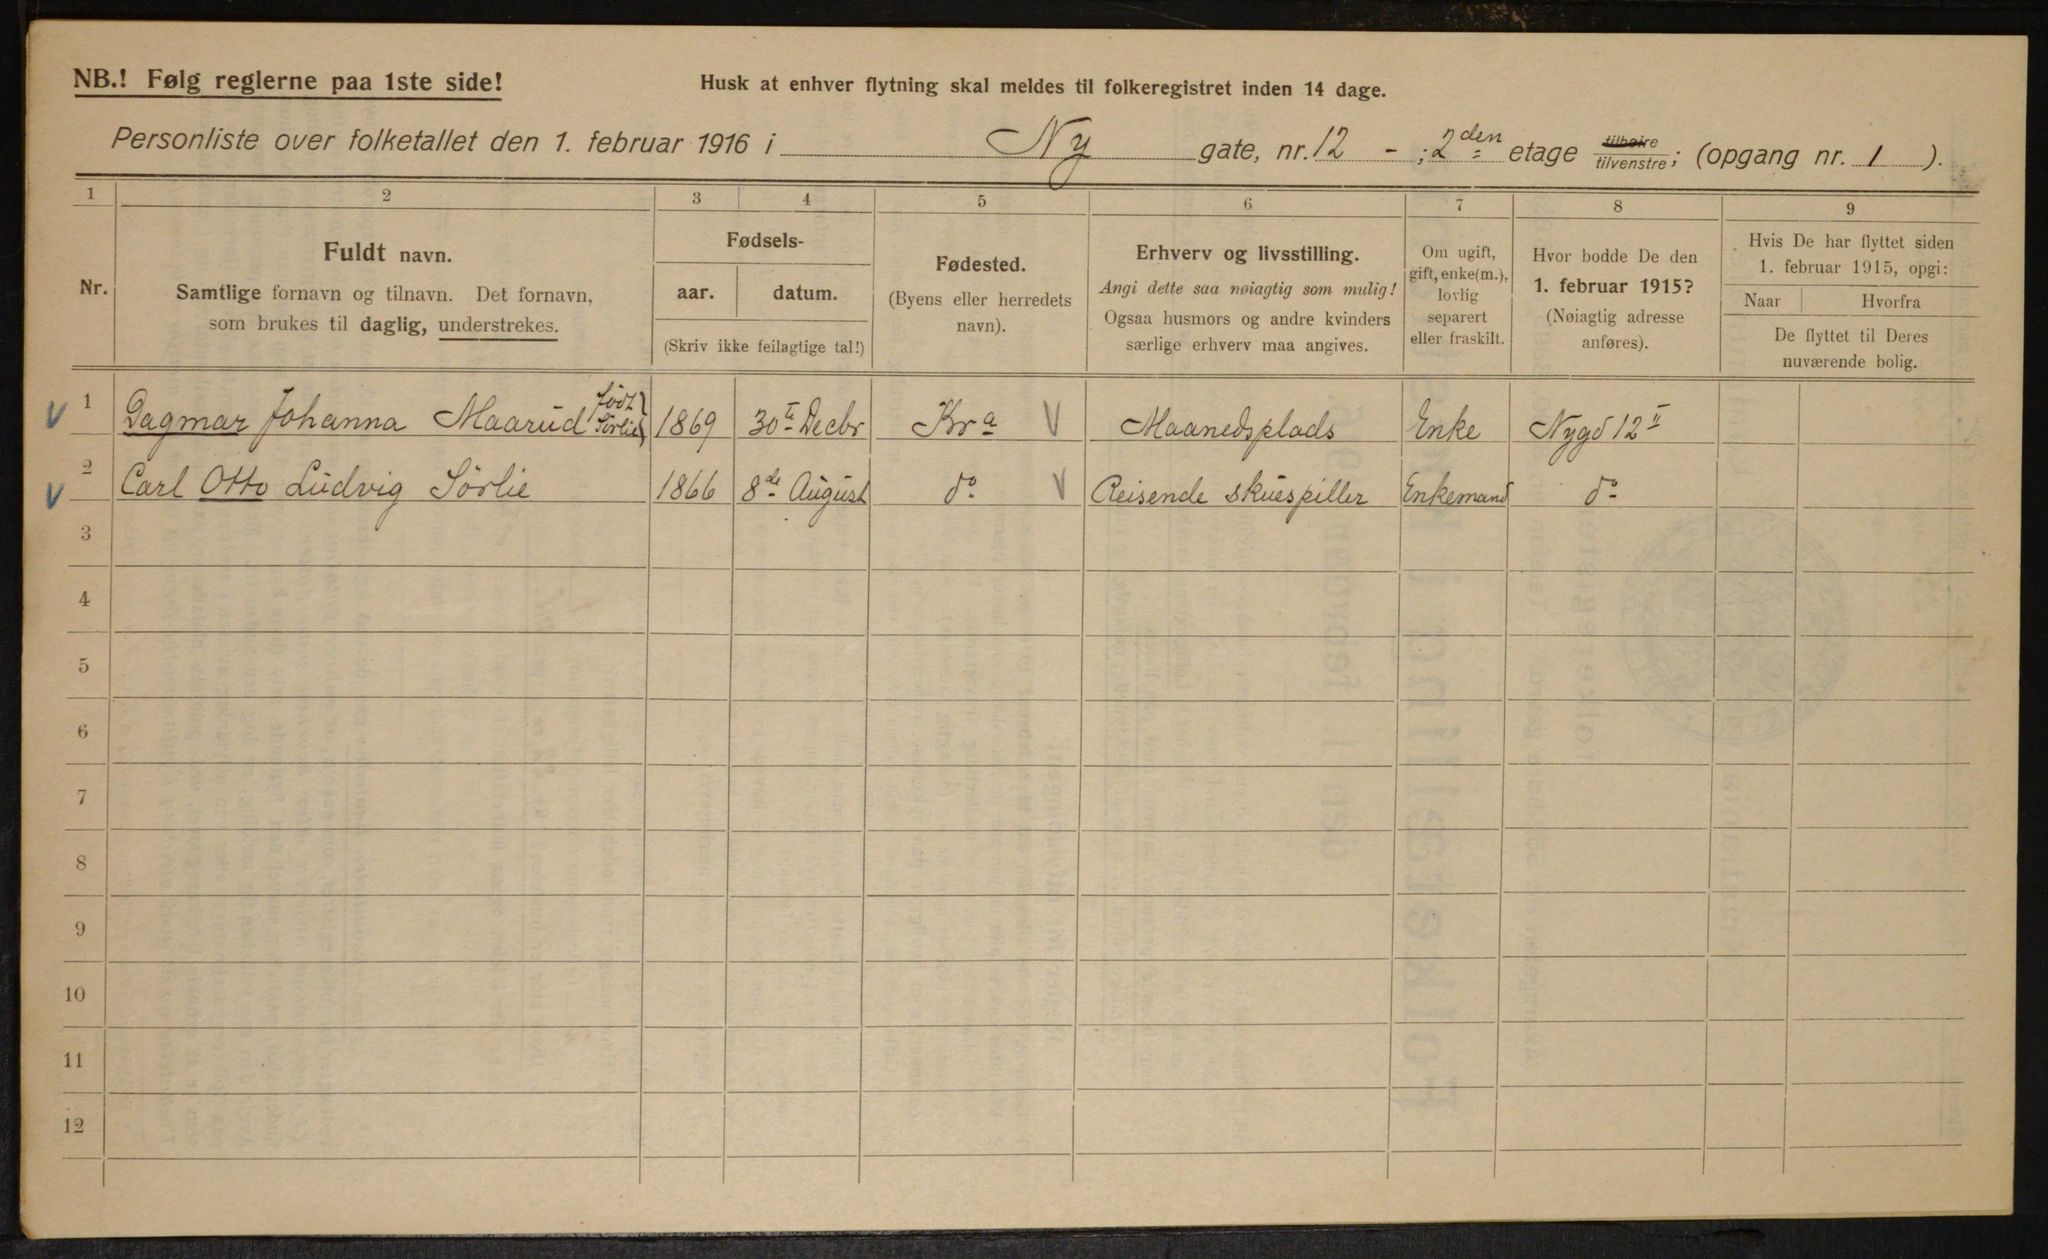 NB.! Følg reglerne paa 1ste side!
Husk at enhver flytning skal meldes til folkeregistret inden 14 dage.
Personliste over folketallet den 1. februar 1916 i Ny gate, nr. 12 - ; 2den etage tilhøire tilvenstre; (opgang nr. 1 ).
1 2 3 4 5 6 7 8 9
Nr.
Fuldt navn.
Samtlige fornavn og tilnavn. Det fornavn,
som brukes til daglig, understrekes.
Fødsels-
aar. datum.
(Skriv ikke feilagtige tal!)
Fødested.
(Byens eller herredets
navn).
Erhverv og livsstilling.
Angi dette saa nøiagtig som mulig!
Ogsaa husmors og andre kvinders
særlige erhverv maa angives.
Om ugift,
gift, enke(m.),
lovlig
separert
eller fraskilt.
Hvor bodde De den
1. februar 1915?
(Nøiagtig adresse
anføres).
Hvis De har flyttet siden
1. februar 1915, opgi:
Naar Hvorfra
De flyttet til Deres
nuværende bolig.
V 1 Dagmar Johanna Maarud født Sörlie 1869 30te Decbr Kra V Maanedsplads Enke Nygd 12 II
V 2 Carl Otto Ludvig Sörlie 1866 8de August do V Reisende skuespiller Enkemand do
3
4
5
6
7
8
9
10
11
12